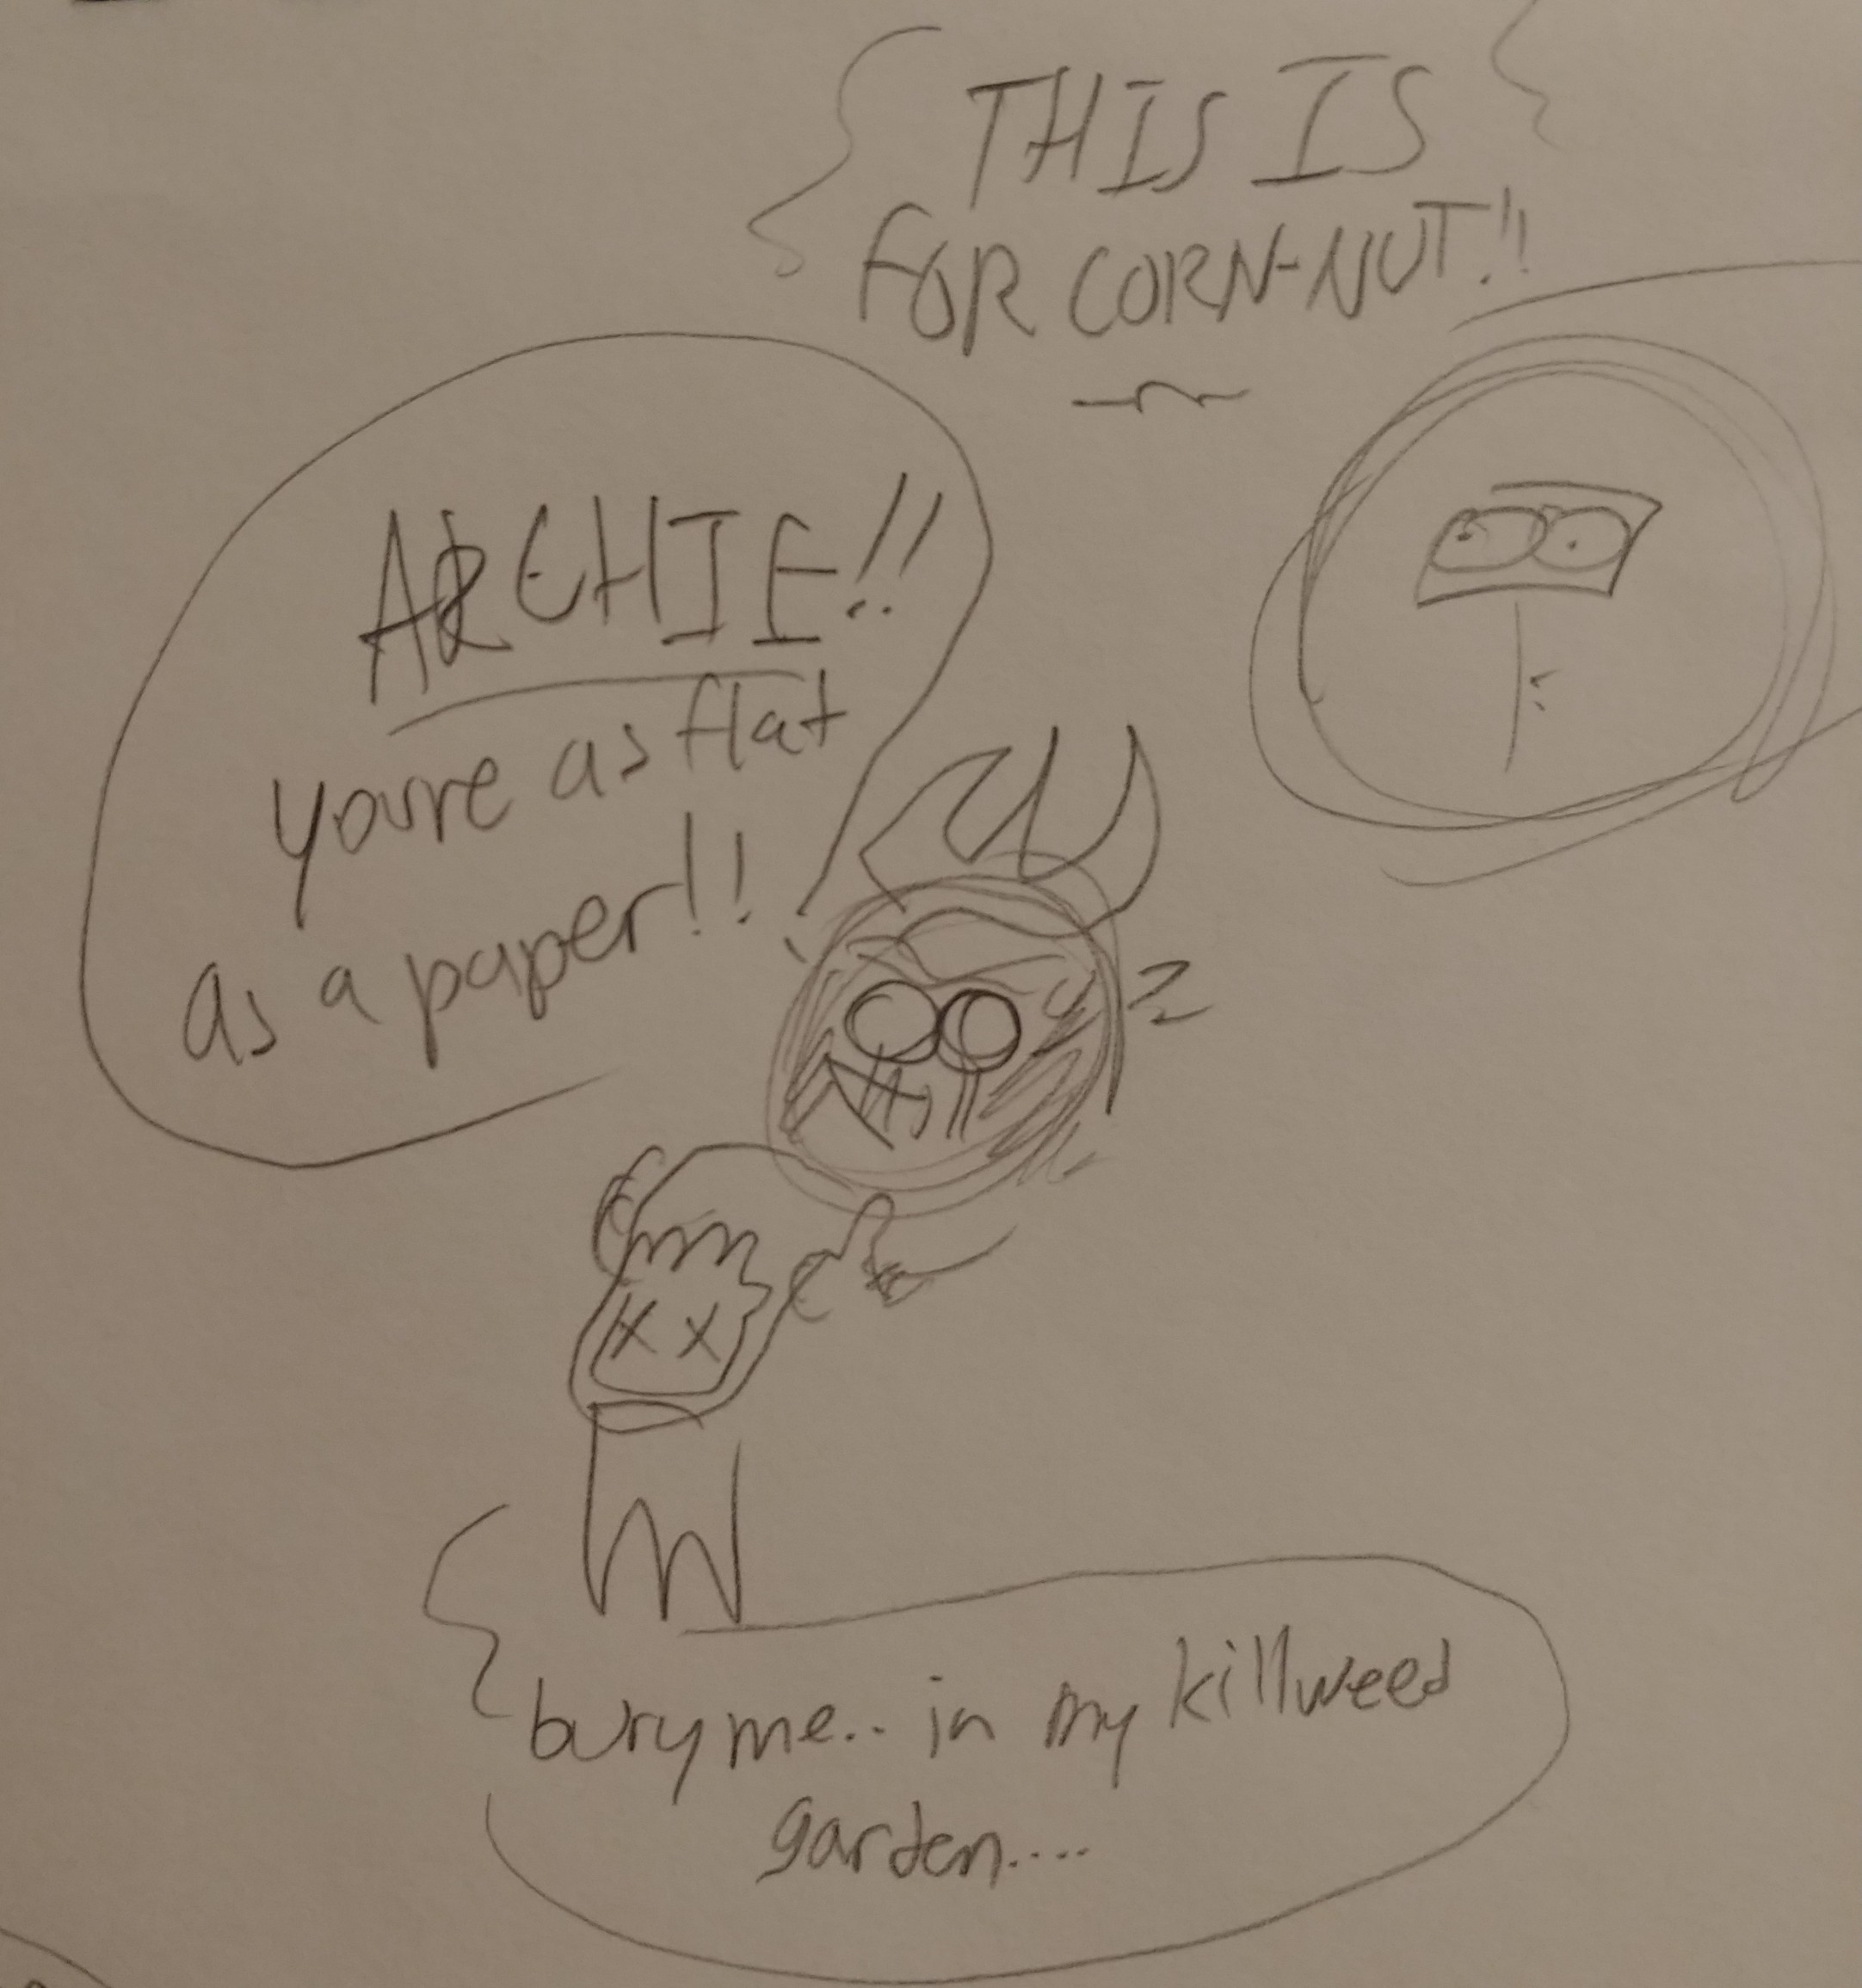 THIS IS
FOR CORN-NUT!!
ARCHIE!!
youre as flat
as a paper!!
bury me.. in my killweed
garden....